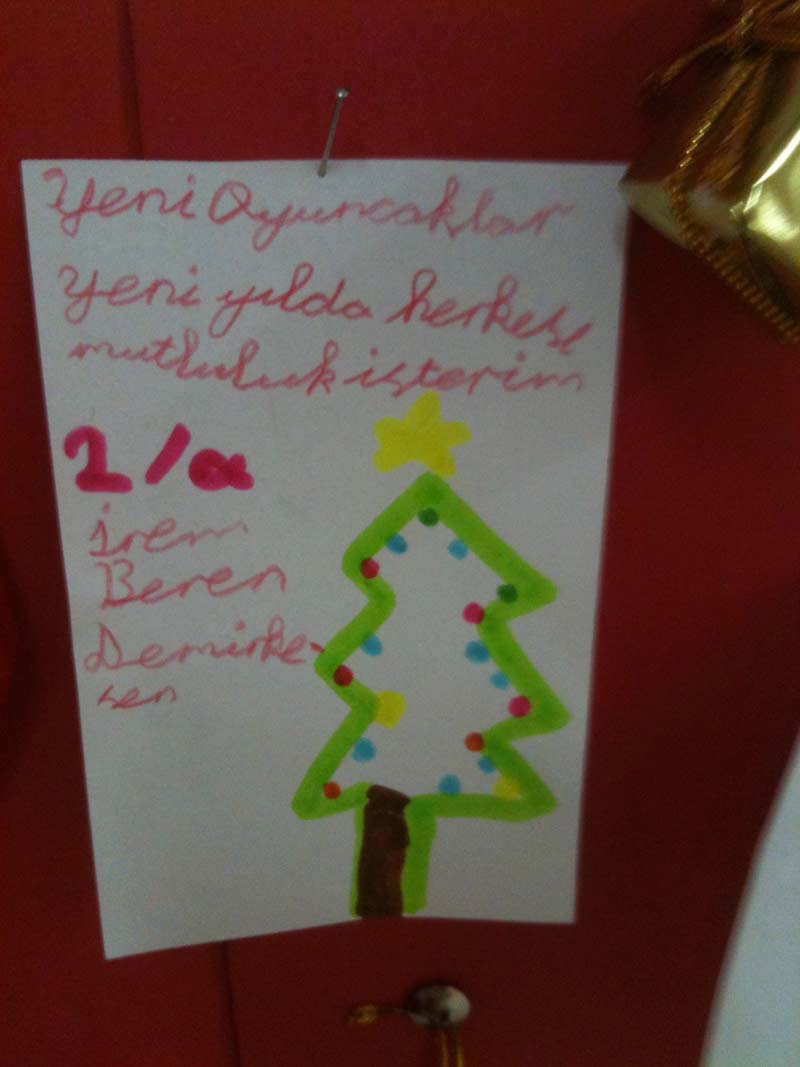 Yeni Oyuncaklar
Yeni yılda herkese
mutluluk isterim
1/a
İrem
Beren
Demirke-
sen